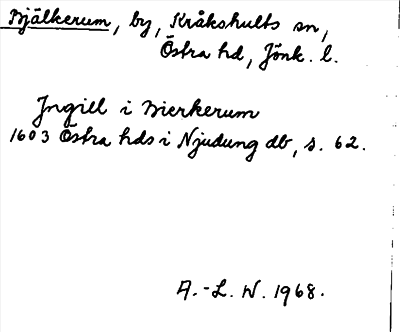 Bjälkerum, by, Kråkshults sn,
Östra hd, Jönk. l.
Ingill i Bierkerum
1603 Östra hds i Njudung db, s. 62.
A.-L. W. 1968.